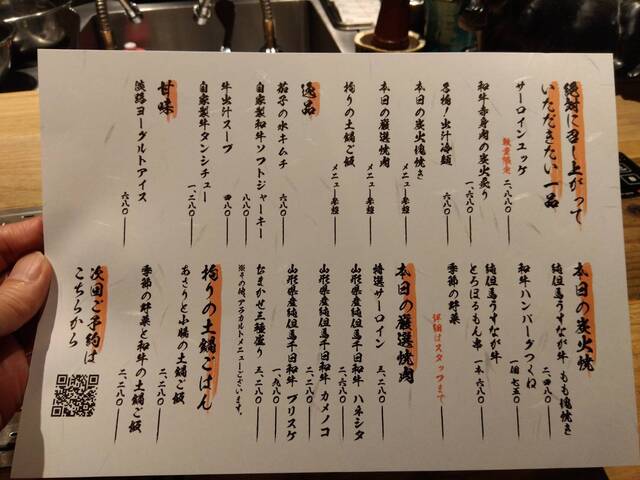 絶対に召し上がって
いただきたい一品
サーロインユッケ
数量限定
二、八八〇
和牛赤身肉の炭火炙り
一、六八〇
名物！出汁冷麺
六八〇
本日の炭火塊焼き
メニュー参照
本日の厳選焼肉
メニュー参照
拘りの土鍋ご飯
メニュー参照
逸品
茄子の水キムチ
六八〇
自家製和牛ソフトジャーキー
八八〇
牛出汁スープ
四八〇
自家製牛タンシチュー
一、二八〇
甘味
淡路ヨーグルトアイス
六八〇
本日の炭火焼
純但馬うすなが牛 もも塊焼き
二、四八〇
和牛ハンバーグつくね
一個 七五〇
純但馬うすなが牛
とろほるもん串
一本 六八〇
季節の野菜
詳細はスタッフまで
本日の厳選焼肉
特選サーロイン
三、二八〇
山形県産純但馬千日和牛 ハネシタ
二、六八〇
山形県産純但馬千日和牛 カメノコ
二、二八〇
山形県産純但馬千日和牛 ブリスケ
一、九八〇
おまかせ三種盛り
三、二八〇
※その他、アラカルトメニューございます。
拘りの土鍋ごはん
あさりと小柱の土鍋ご飯
二、二八〇
季節の野菜と和牛の土鍋ご飯
二、二八〇
次回ご予約は
こちらから